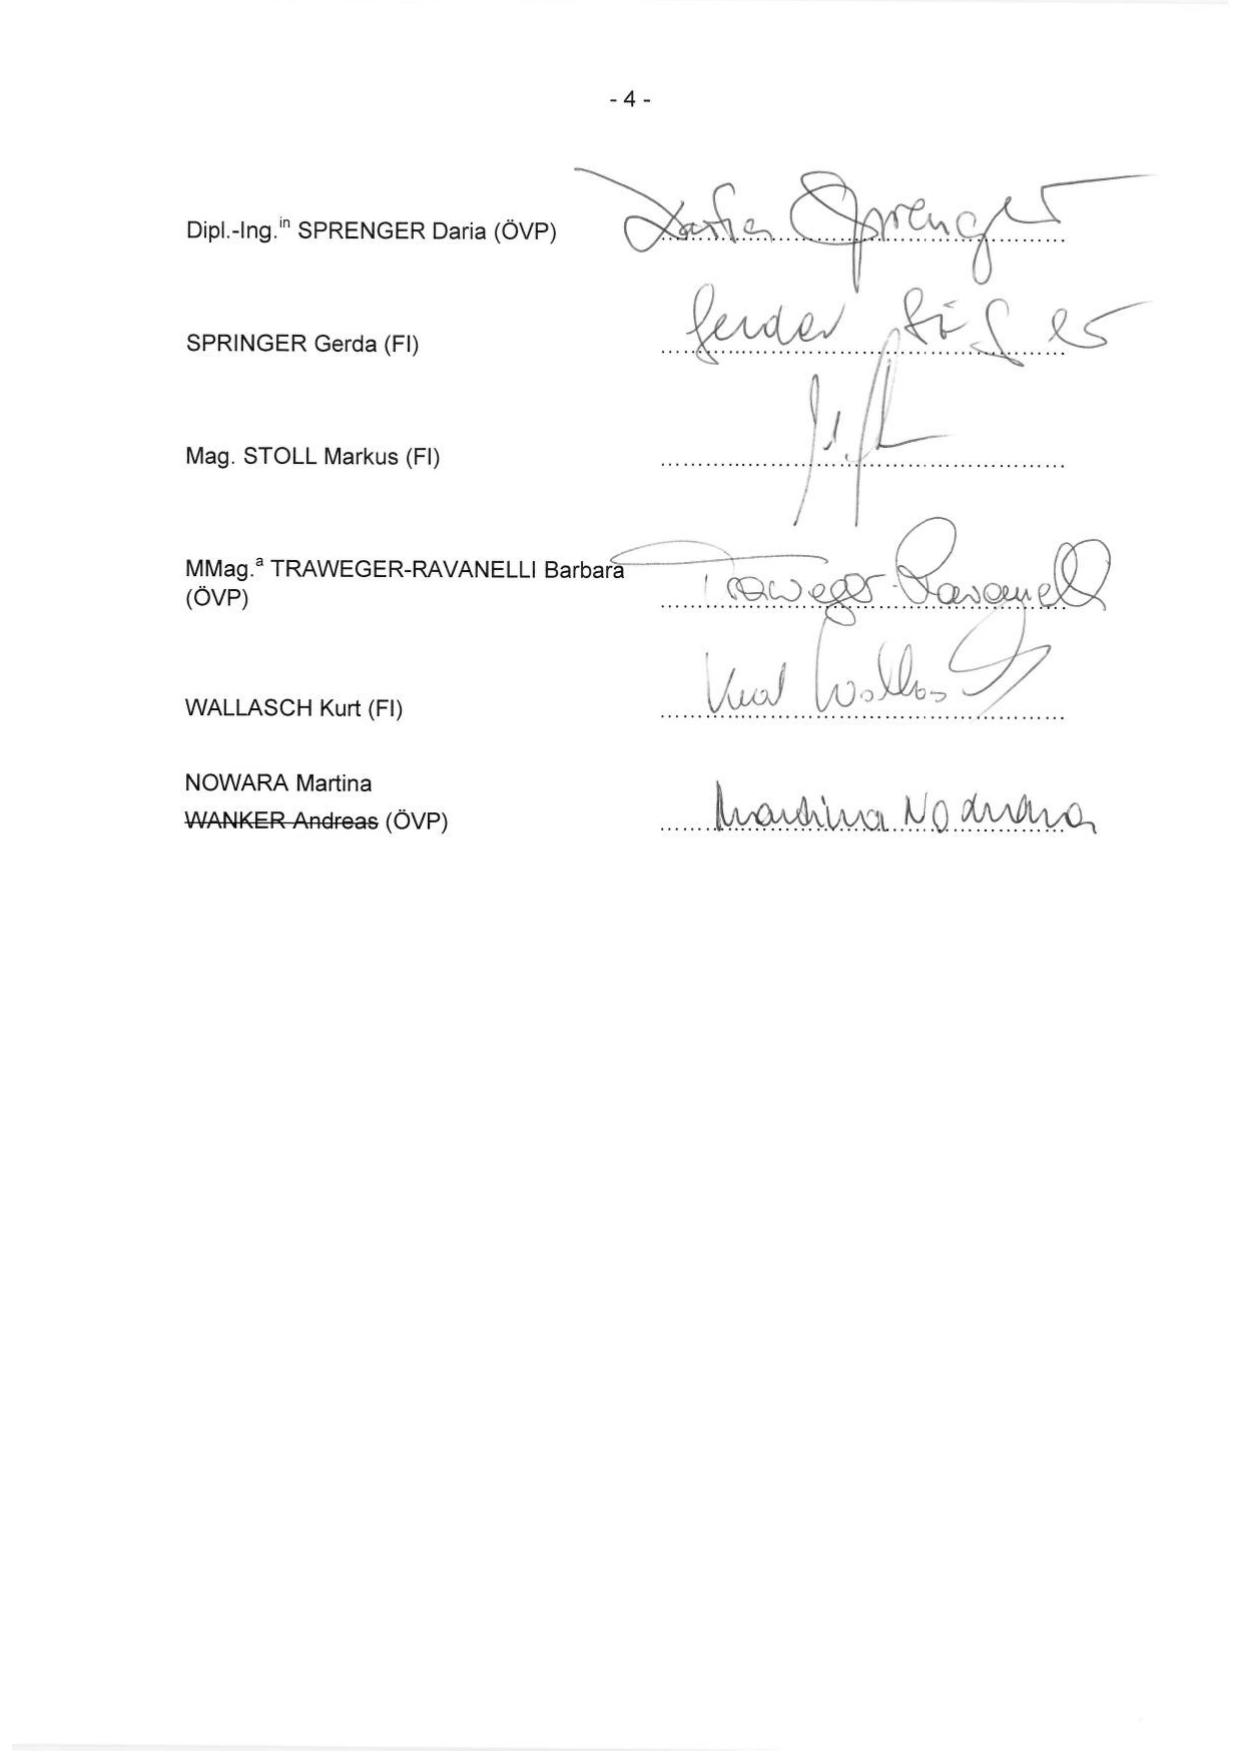 - 4 -
Dipl.-Ing.in SPRENGER Daria (ÖVP)
Daria Sprenger
SPRINGER Gerda (FI)
Gerda
Mag. STOLL Markus (FI)
MMag.a TRAWEGER-RAVANELLI Barbara
(ÖVP)
Traweger-Ravanelli
WALLASCH Kurt (FI)
Kurt Wallasch
NOWARA Martina
WANKER Andreas (ÖVP)
Martina Nowara